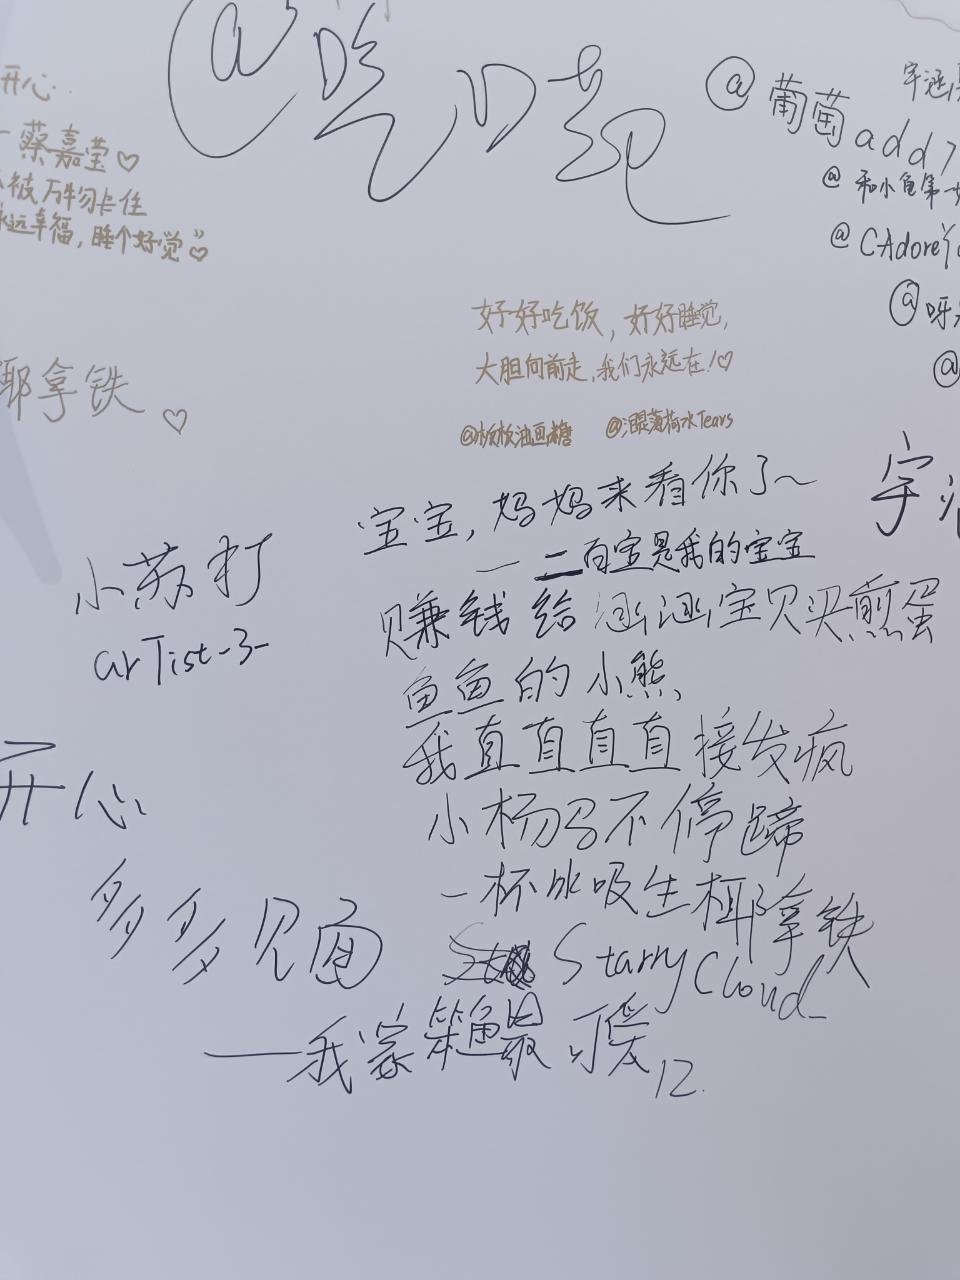 开心
蔡嘉莹♡
被万物卡住
永远幸福，睡个好觉”♡
@葡萄add
@和小鱼第一
@CAdore
@呀
@
好好吃饭，好好睡觉，
大胆向前走，我们永远在！♡
@板板油画糖 @泪眼薄荷水Tears
椰拿铁♡
宝宝，妈妈来看你了～
—二百宝是我的宝宝
赚钱给涵涵宝贝买煎蛋
鱼鱼的小熊
我直直直直接发疯
小杨马不停蹄
一杯冰吸生椰拿铁
StarryCloud_
宇涵
小苏打
arTist-3-
开心
多多见面
——我家笨鱼最可爱12.